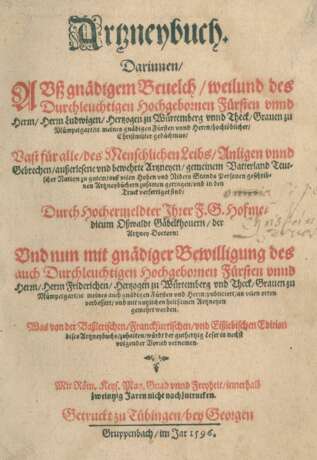 Artzneybuch.
Darinnen/
AUß gnädigem Beuelch/ weilund des
Durchleuchtigen Hochgebornen Fürsten vnnd
Herrn/ Herrn Ludwigen/ Hertzogen zu Würtemberg vnnd Theck/ Grauen zu
Mümpelgart/ meines gnädigen Fürsten vnnd Herrn/ hochlöblicher/
Christmilter gedächtnus/
Vast für alle/ des Menschlichen Leibs/ Anligen vnnd
Gebrechen/ außerlesene vnd bewehrte Artzneyen/ gemeinem Vatterland Teut-
scher Nation zu gutem/ auß vilen Hohen vnd Nidern Stands Personen geschrib-
nen Artzneybüchern zusamen getragen/ vnd in den
Truck verfertiget sind/
Durch Hochermeldter Ihrer F. G. Hofme-
dicum Oßwaldt Gäbelkhouern/ der
Artzney Doctorn:
Vnd nun mit gnädiger Bewilligung des
auch Durchleuchtigen Hochgebornen Fürsten vnnd
Herrn/ Herrn Friderichen/ Hertzogen zu Würtemberg vnd Theck/ Grauen zu
Mümpelgart/ meines auch gnädigen Fürsten vnd Herrn/ an vilen orten
verbessert/ vnd mit nutzlichen heilsamen Artzneyen
gemehret worden.
Was von der Baßlerischen/ Franckfurtischen/ vnd Eißlebischen Edition
dises Artzneybuchs zuhalten/ würdt der guthertzig Leser in nechst
volgender Vorred vernemen.
Mit Röm. Keys. May. Gnad vnnd Freyheit/ innerhalb
zweintzig Jaren nicht nachzutrucken.
Getruckt zu Tübingen/ bey Georgen
Gruppenbach/ im Jar 1596.